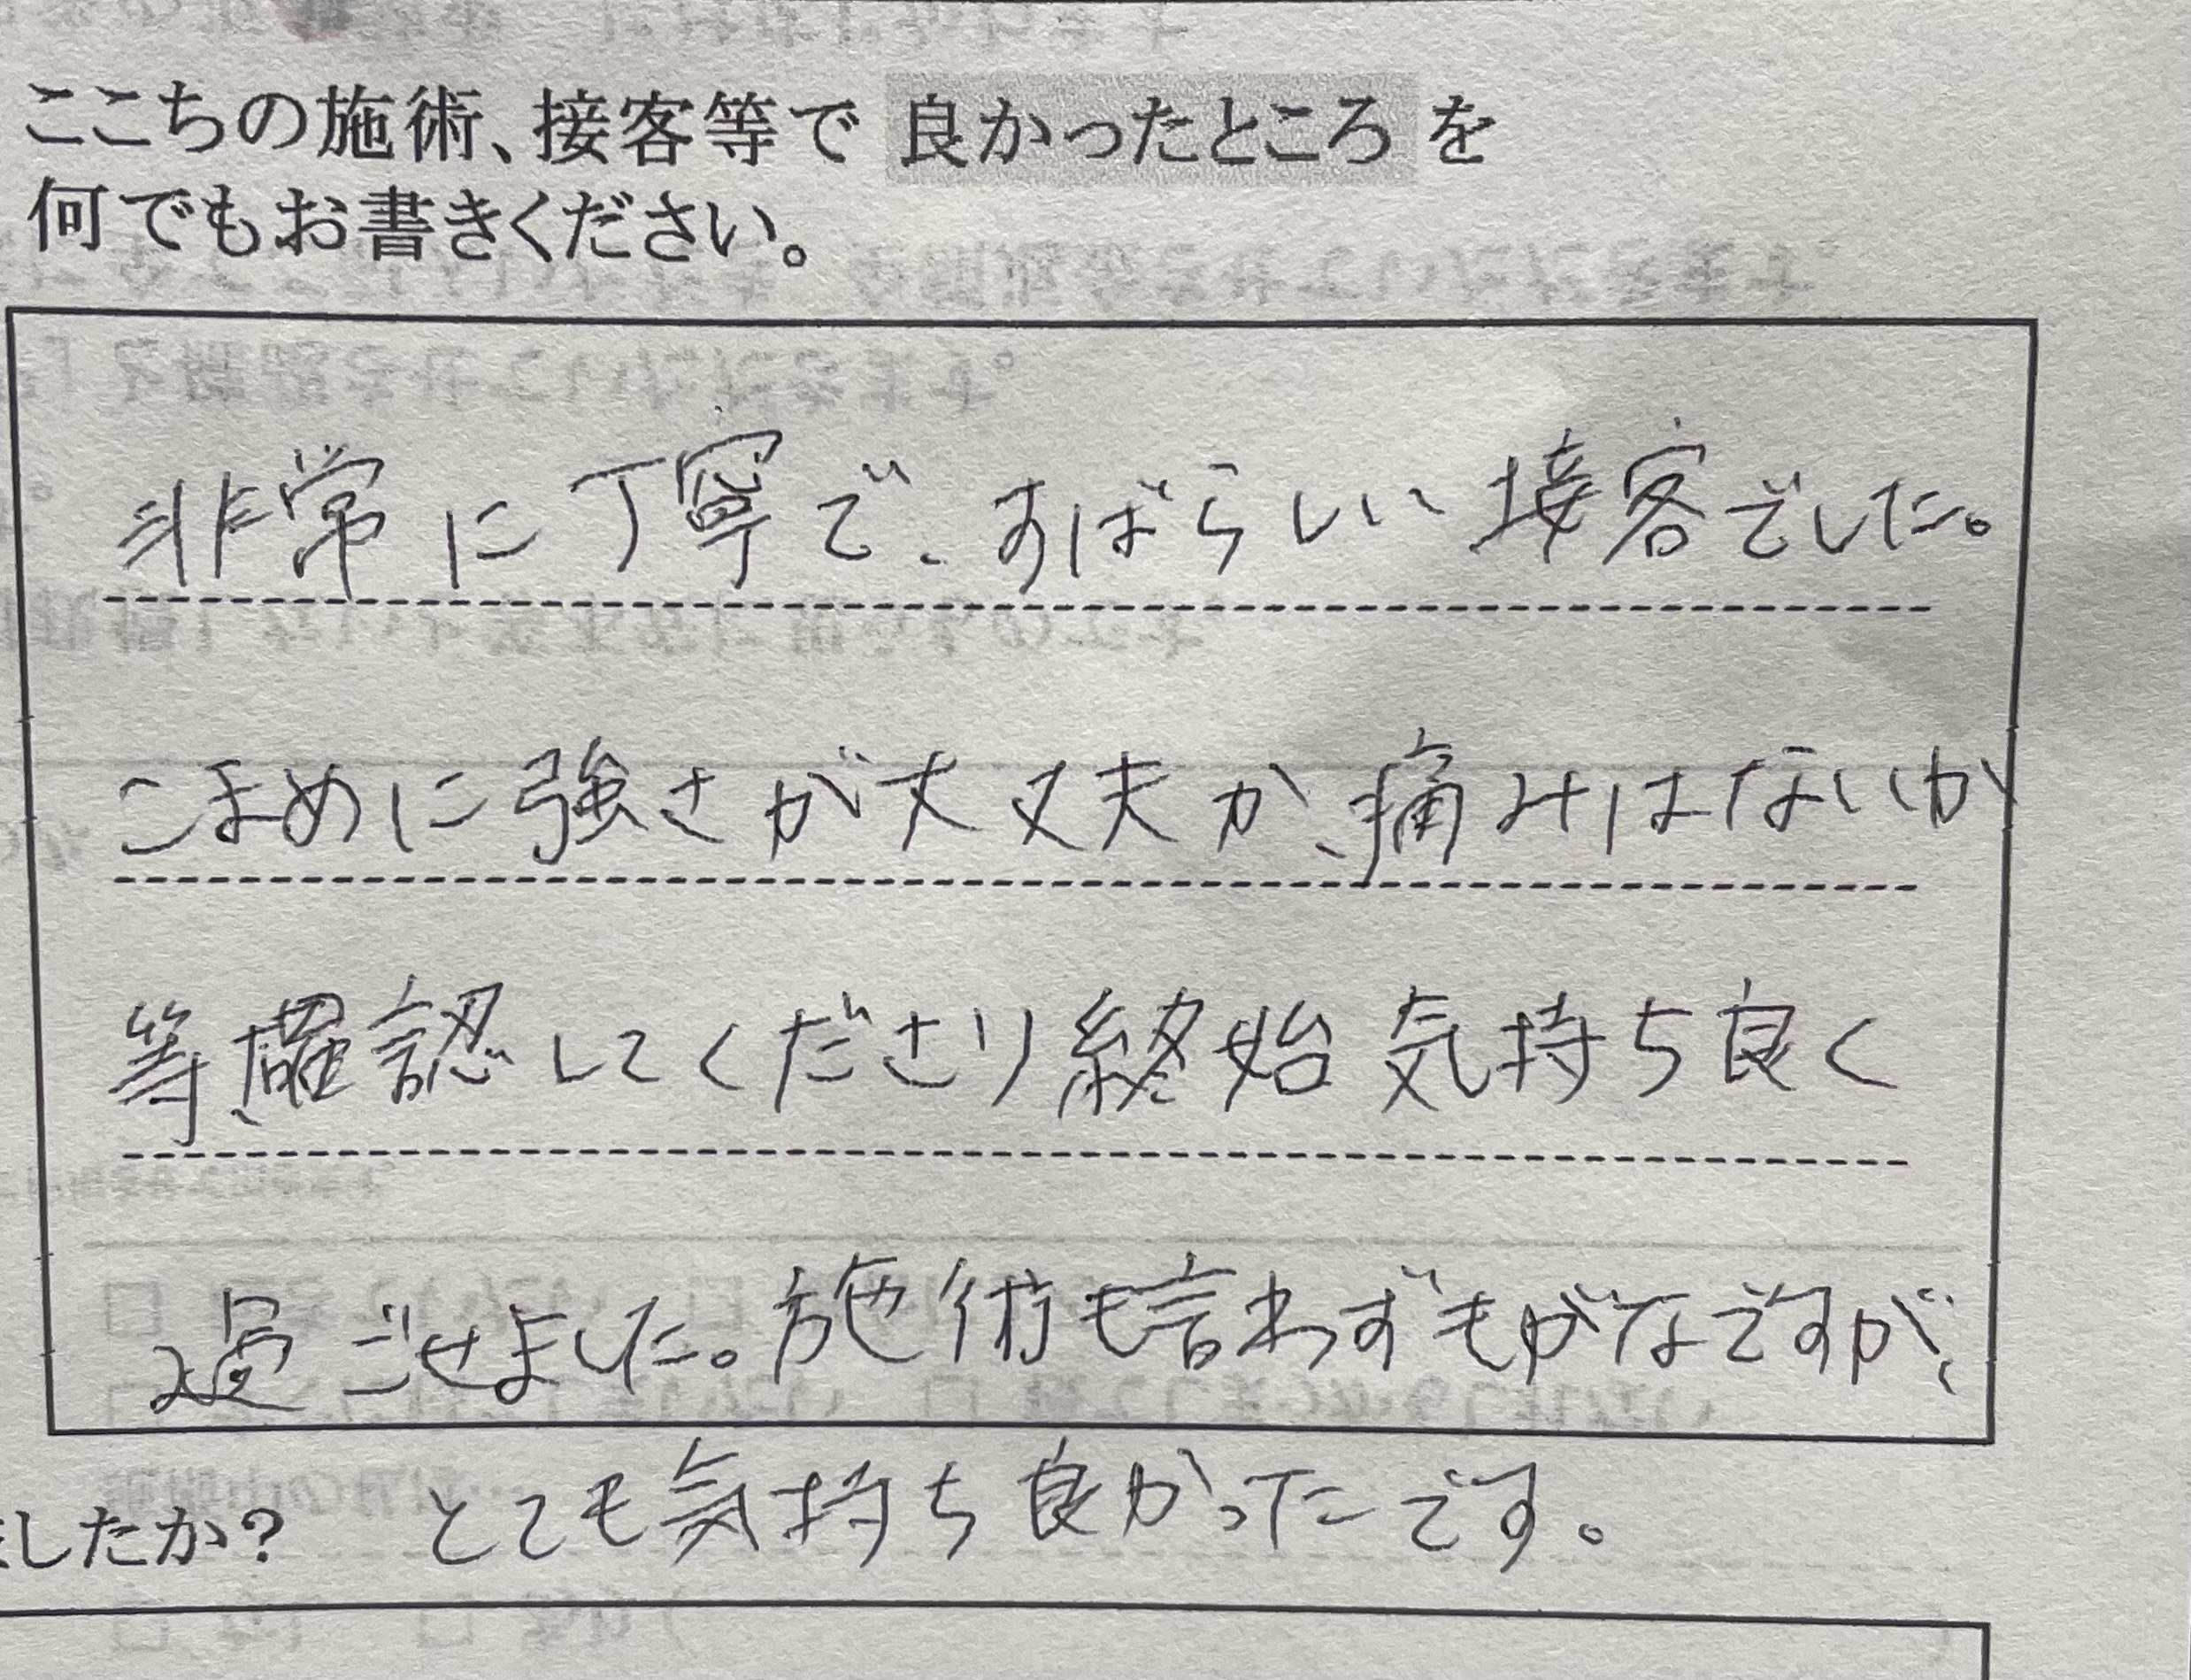 ここちの施術、接客等で 良かったところ を
何でもお書きください。
非常に丁寧で、すばらしい接客でした。
こまめに強さが大丈夫か、痛みはないか
等、確認してくださり終始気持ち良く
過ごせました。施術も言わずもがなですが、
とても気持ち良かったです。
ましたか?